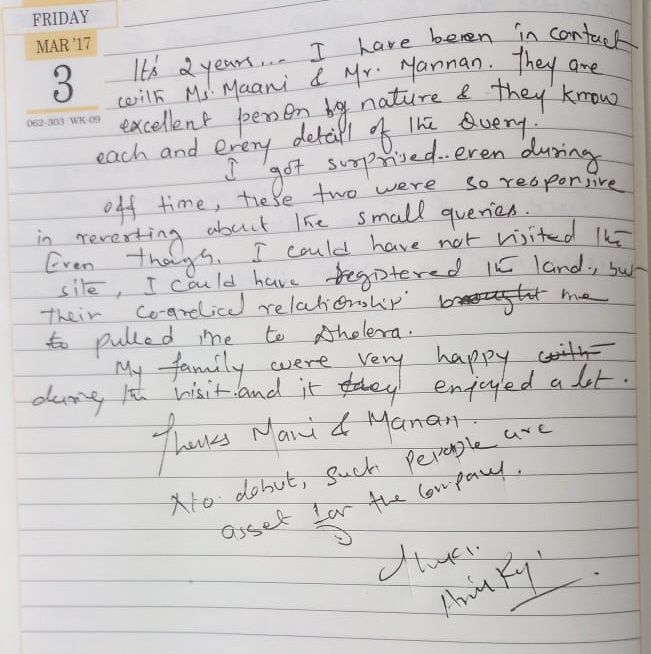 FRIDAY
MAR '17
3
062-303 WK-09
It's 2 years... I have beren in contact
with Ms. Maani & Mr. Mannan. They are
excellent person by nature & they know
each and every detail of the Query.
I got surprised.. even during
off time, these two were so responsive
in reverting about the small queries.
Even though, I could have not visited the
site, I could have registered the land, but
their co-ordical relationship brought me
to pulled me to Dholera.
My family were very happy with
during the visit. and it they enjoyed a lot.
Thanks Mani & Manan.
No. dobut, such Perople are
asset for the company.